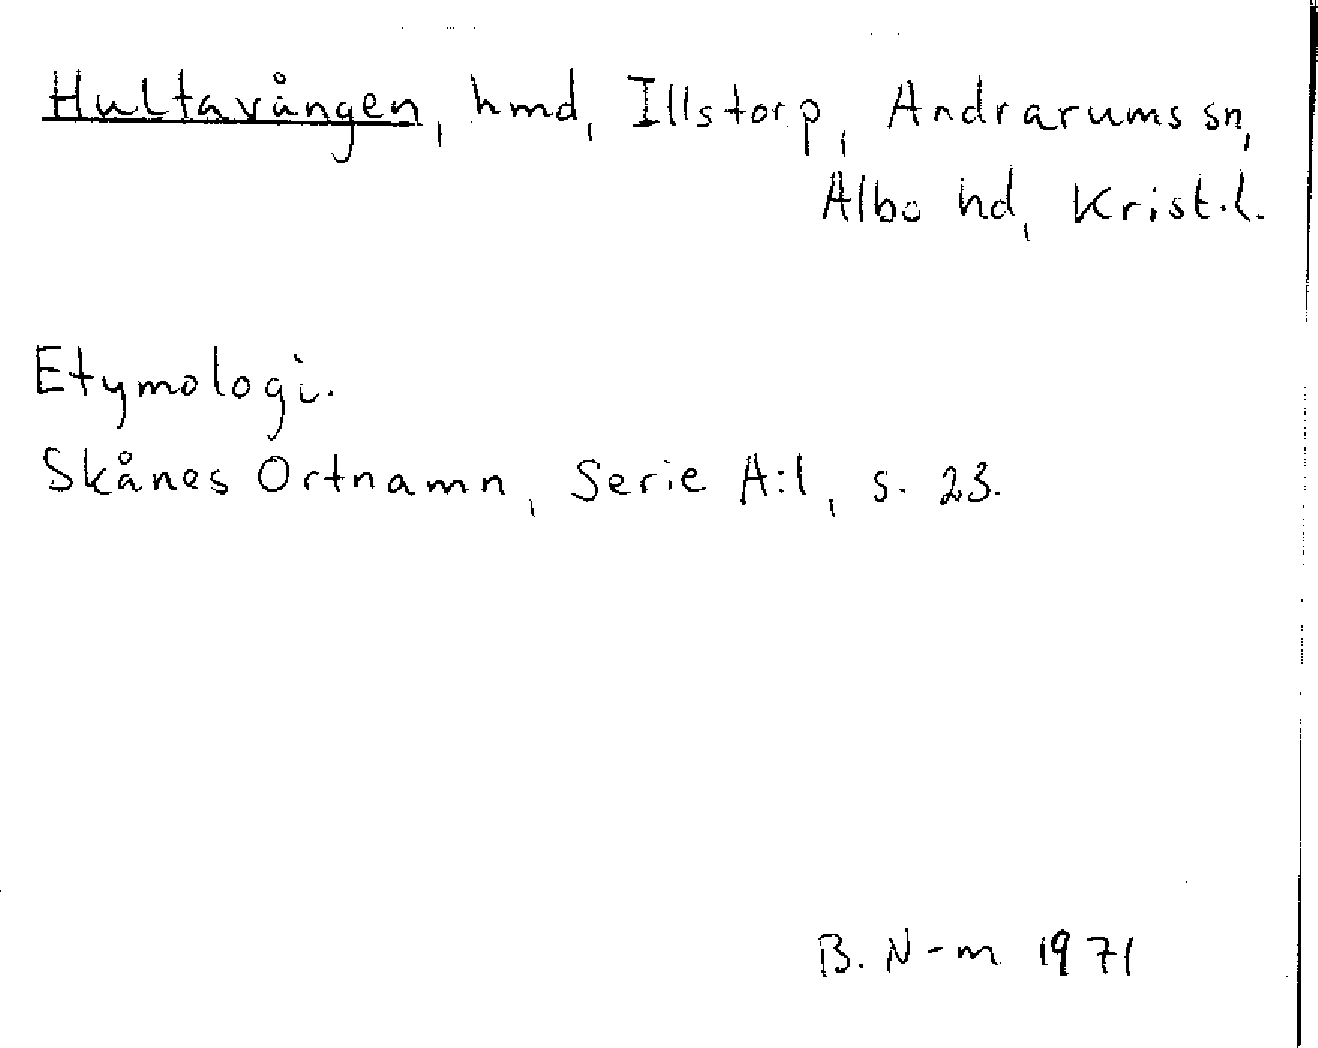 Hultavången, hmd, Illstorp, Andrarums sn,
Albo hd, Krist.l.
Etymologi.
Skånes Ortnamn, Serie A:1, s. 23.
B. N-m 1971